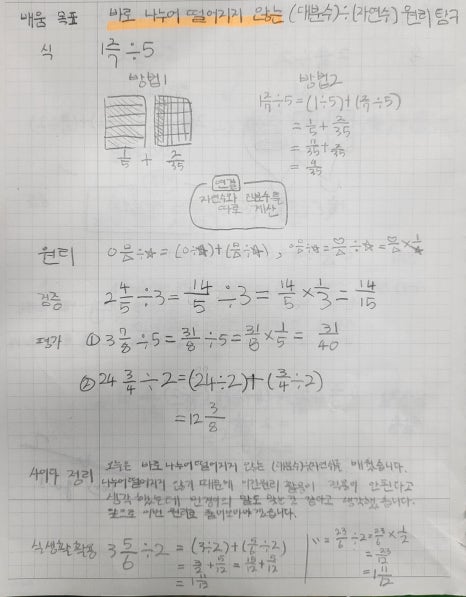 배움 목표 바로 나누어 떨어지지 않는 (대분수)÷(자연수) 원리 탐구
식 1 2/7 ÷5
방법1
1/5 + 2/35
방법2
1 2/7 ÷5 = (1÷5)+(2/7÷5)
= 1/5 + 2/35
= 7/35 + 2/35
= 9/35
연결
자연수와 진분수를
따로 계산
원리 ○ □/△ ÷☆ = (○÷☆)+(□/△÷☆), ○ □/△ ÷☆ = ♡/△ ÷☆ = ♡/△ × 1/☆
검증 2 4/5 ÷3 = 14/5 ÷3 = 14/5 × 1/3 = 14/15
평가 ① 3 7/8 ÷5 = 31/8 ÷5 = 31/8 × 1/5 = 31/40
② 24 3/4 ÷2 = (24÷2)+(3/4÷2)
= 12 3/8
정리 오늘은 바로 나누어 떨어지지 않는 (대분수)÷(자연수)를 배웠습니다.
나누어 떨어지지 않기 때문에 이런 원리 활용이 적용이 안된다고
생각했는데 말도 맞는 것 같다고 생각했습니다.
앞으로 이번 원리로
3 5/6 ÷2 = (3÷2)+(5/6÷2)
= 3/2 + 5/12 = 18/12 + 5/12
= 1 11/12
〃 = 23/6 ÷2 = 23/6 × 1/2
= 23/12
= 1 11/12